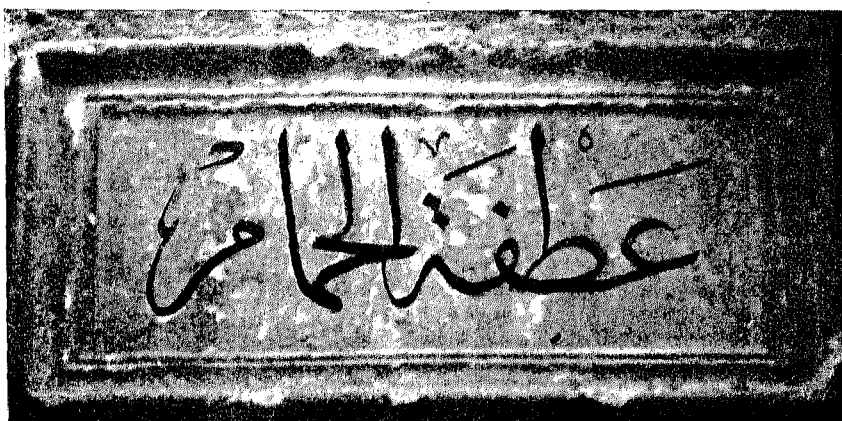 عَطفَة الحمام